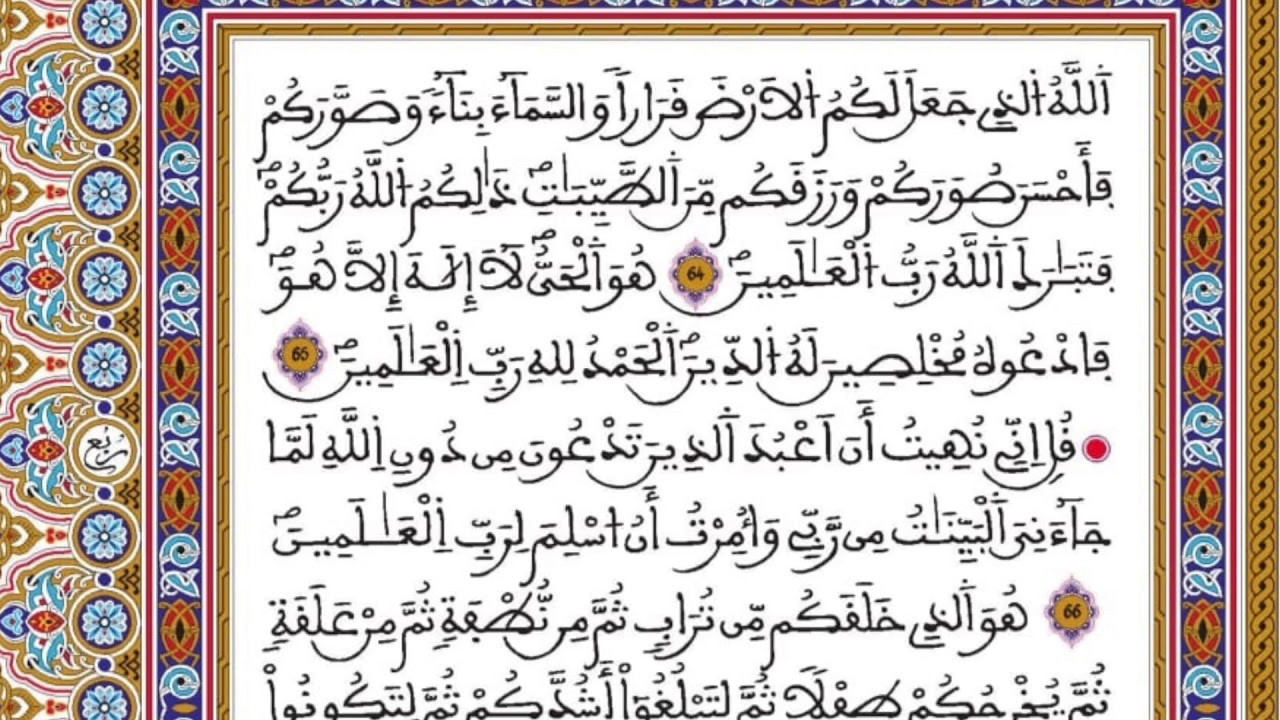 اَ۬للَّهُ اُ۬لذِے جَعَلَ لَكُمُ اُ۬لَارْضَ قَرَاراٗ وَالسَّمَآءَ بِنَآءٗ وَصَوَّرَكُمْ
فَأَحْسَنَ صُوَرَكُمْ وَرَزَقَكُم مِّنَ اَ۬لطَّيِّبَٰتِۖ ذَٰلِكُمُ اُ۬للَّهُ رَبُّكُمْۖ
فَتَبَٰرَكَ اَ۬للَّهُ رَبُّ اُ۬لْعَٰلَمِينَۖ 64 هُوَ اَ۬لْحَيُّ لَآ إِلَٰهَ إِلَّا هُوَۖ
فَادْعُوهُ مُخْلِصِينَ لَهُ اُ۬لدِّينَۖ اَ۬لْحَمْدُ لِلهِ رَبِّ اِ۬لْعَٰلَمِينَۖ 65
ربع
قُلِ اِنِّے نُهِيتُ أَنَ اَعْبُدَ اَ۬لذِينَ تَدْعُونَ مِن دُونِ اِ۬للَّهِ لَمَّا
جَآءَنِيَ اَ۬لْبَيِّنَٰتُ مِن رَّبِّے وَأُمِرْتُ أَنُ ا۟سْلِمَ لِرَبِّ اِ۬لْعَٰلَمِينَۖ
66 هُوَ اَ۬لذِے خَلَقَكُم مِّن تُرَابٖ ثُمَّ مِن نُّطْفَةٖ ثُمَّ مِنْ عَلَقَةٖ
ثُمَّ يُخْرِجُكُمْ طِفْلاٗ ثُمَّ لِتَبْلُغُوٓاْ أَشُدَّكُمْ ثُمَّ لِتَكُونُواْ